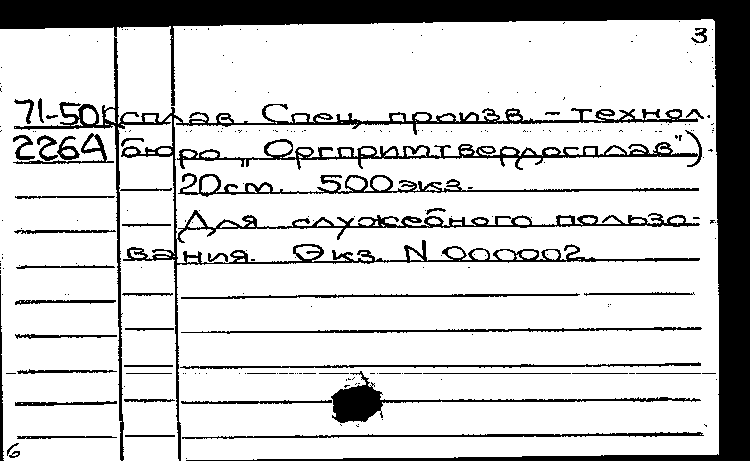 3
71-50к сплав. Спец. произв. - технол.
226А бюро „Оргпримтвердосплав")
20см. 500экз.
Для служебного пользо-
вания. Экз. N 000002.
6